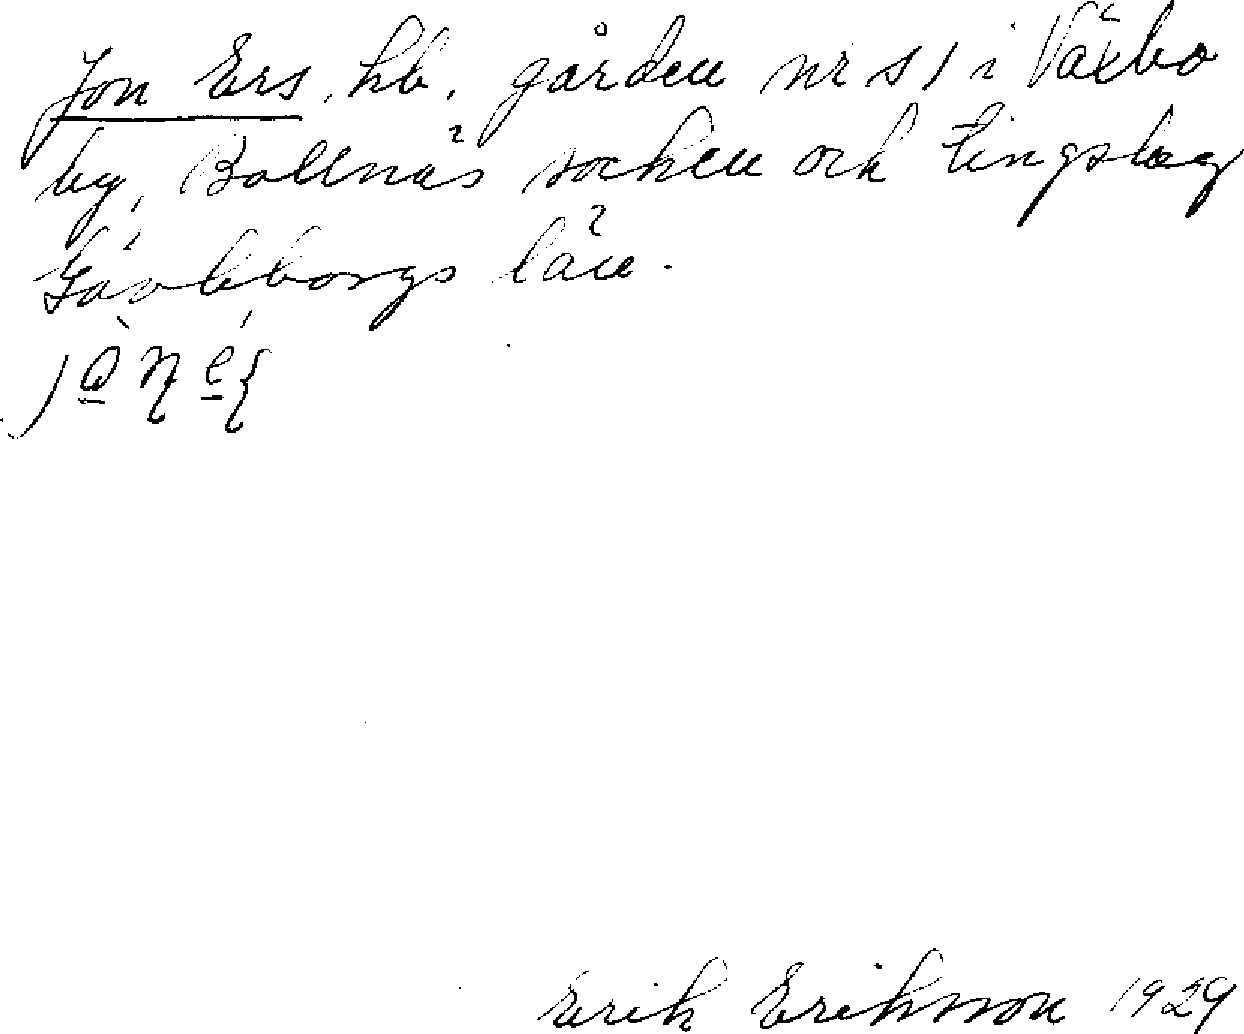 Jon Ers, hb. gården nr 51 i Växbo
by, Bollnäs socken och tingslag
Gävleborgs län.
Erik Erikson 1929